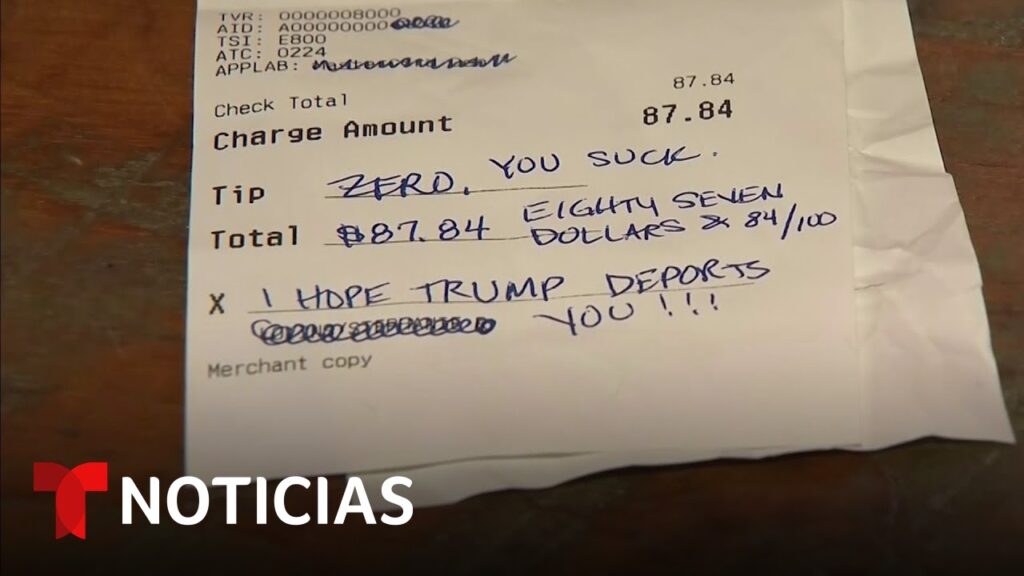 TVR: 0000008000
AID: A00000000
TSI: E800
ATC: 0224
APPLAB:
Check Total 87.84
Charge Amount 87.84
Tip ZERO, YOU SUCK.
Total $87.84 EIGHTY SEVEN
DOLLARS & 84/100
X I HOPE TRUMP DEPORTS
YOU!!!
Merchant copy
T NOTICIAS